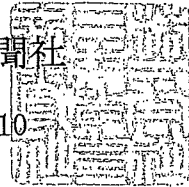 聞社
10